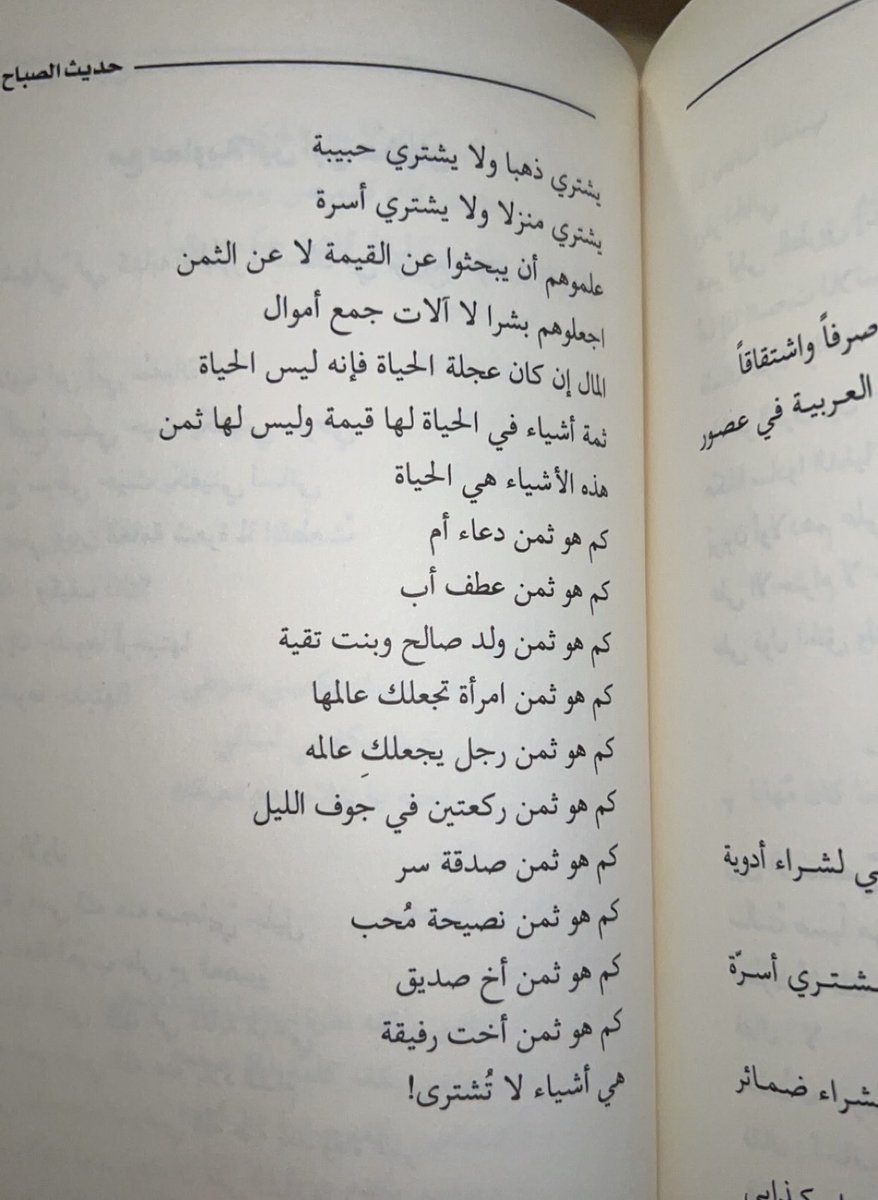 حديث الصباح
يشتري ذهبا ولا يشتري حبيبة
يشتري منزلا ولا يشتري أسرة
علموهم أن يبحثوا عن القيمة لا عن الثمن
اجعلوهم بشرا لا آلات جمع أموال
المال إن كان عجلة الحياة فإنه ليس الحياة
ثمة أشياء في الحياة لها قيمة وليس لها ثمن
هذه الأشياء هي الحياة
كم هو ثمن دعاء أم
كم هو ثمن عطف أب
كم هو ثمن ولد صالح وبنت تقية
كم هو ثمن امرأة تجعلك عالمها
كم هو ثمن رجل يجعلكِ عالمه
كم هو ثمن ركعتين في جوف الليل
كم هو ثمن صدقة سر
كم هو ثمن نصيحة مُحب
كم هو ثمن أخ صديق
كم هو ثمن أخت رفيقة
هي أشياء لا تُشترى!
صرفاً واشتقاقاً
العربية في عصور
لشراء أدوية
أسرّة
ضمائر